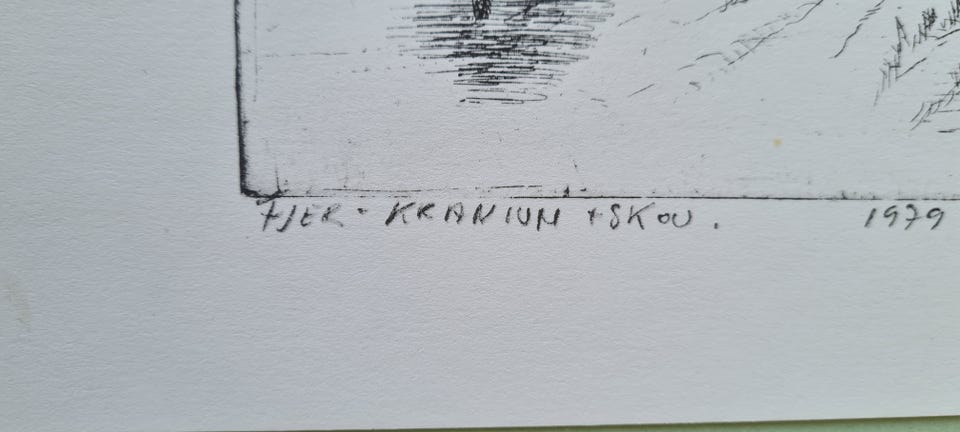 FJER - KRANIUM + SKOV. 1979